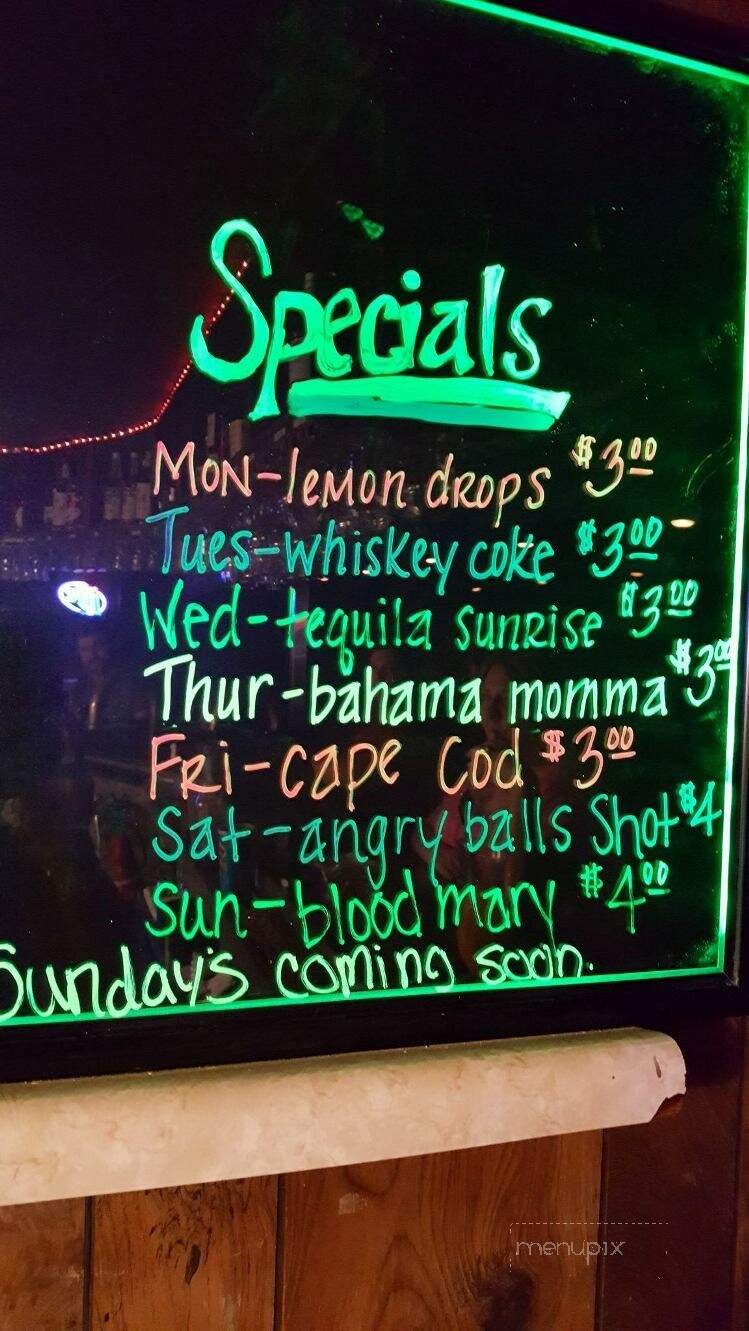 Specials
Mon-lemon drops $3.00
Tues-whiskey coke $3.00
Wed-tequila sunrise $3.00
Thur-bahama momma $3.00
Fri-cape Cod $3.00
Sat-angry balls Shot $4
Sun-blood mary $4.00
Sunday's coming soon.
menupix